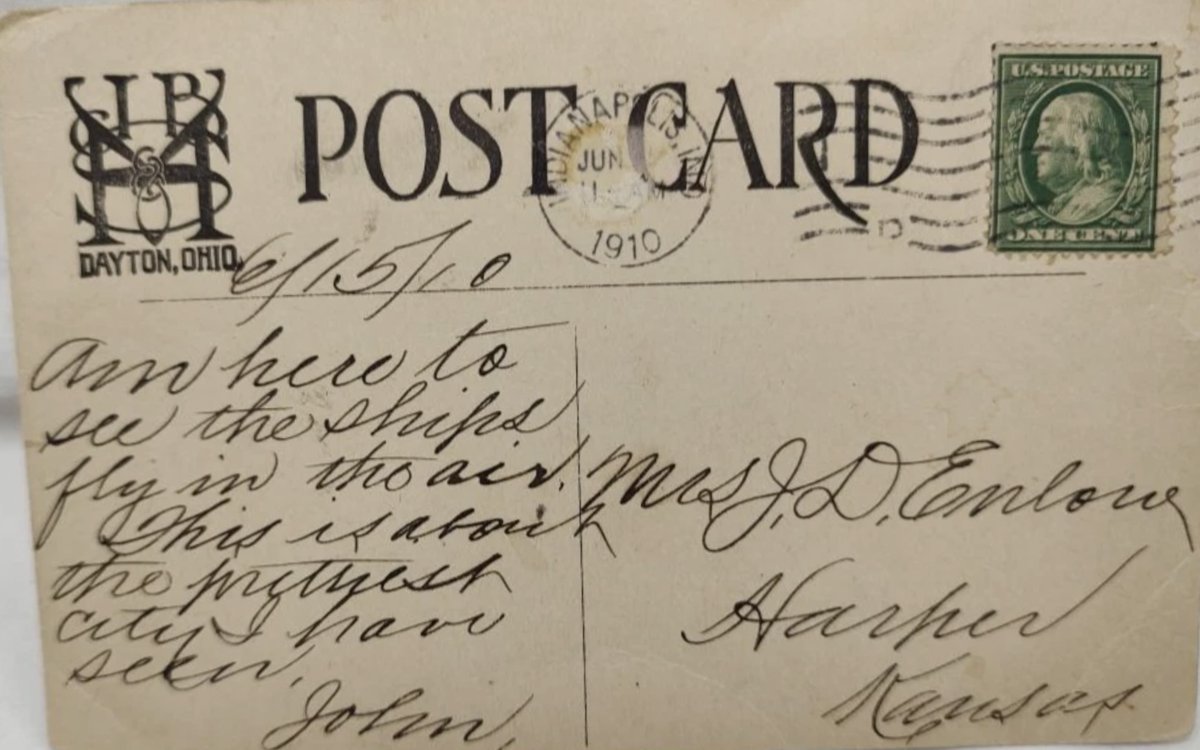 POST CARD
U.S. POSTAGE
ONE CENT
INDIANAPOLIS, IND
JUN
AM
1910
D
DAYTON, OHIO.
6/15/10
Am here to
see the ships
fly in the air.
This is about
the prettyest
city I have
seen.
John,
Mrs J. D. Enlow
Harper
Kansas.